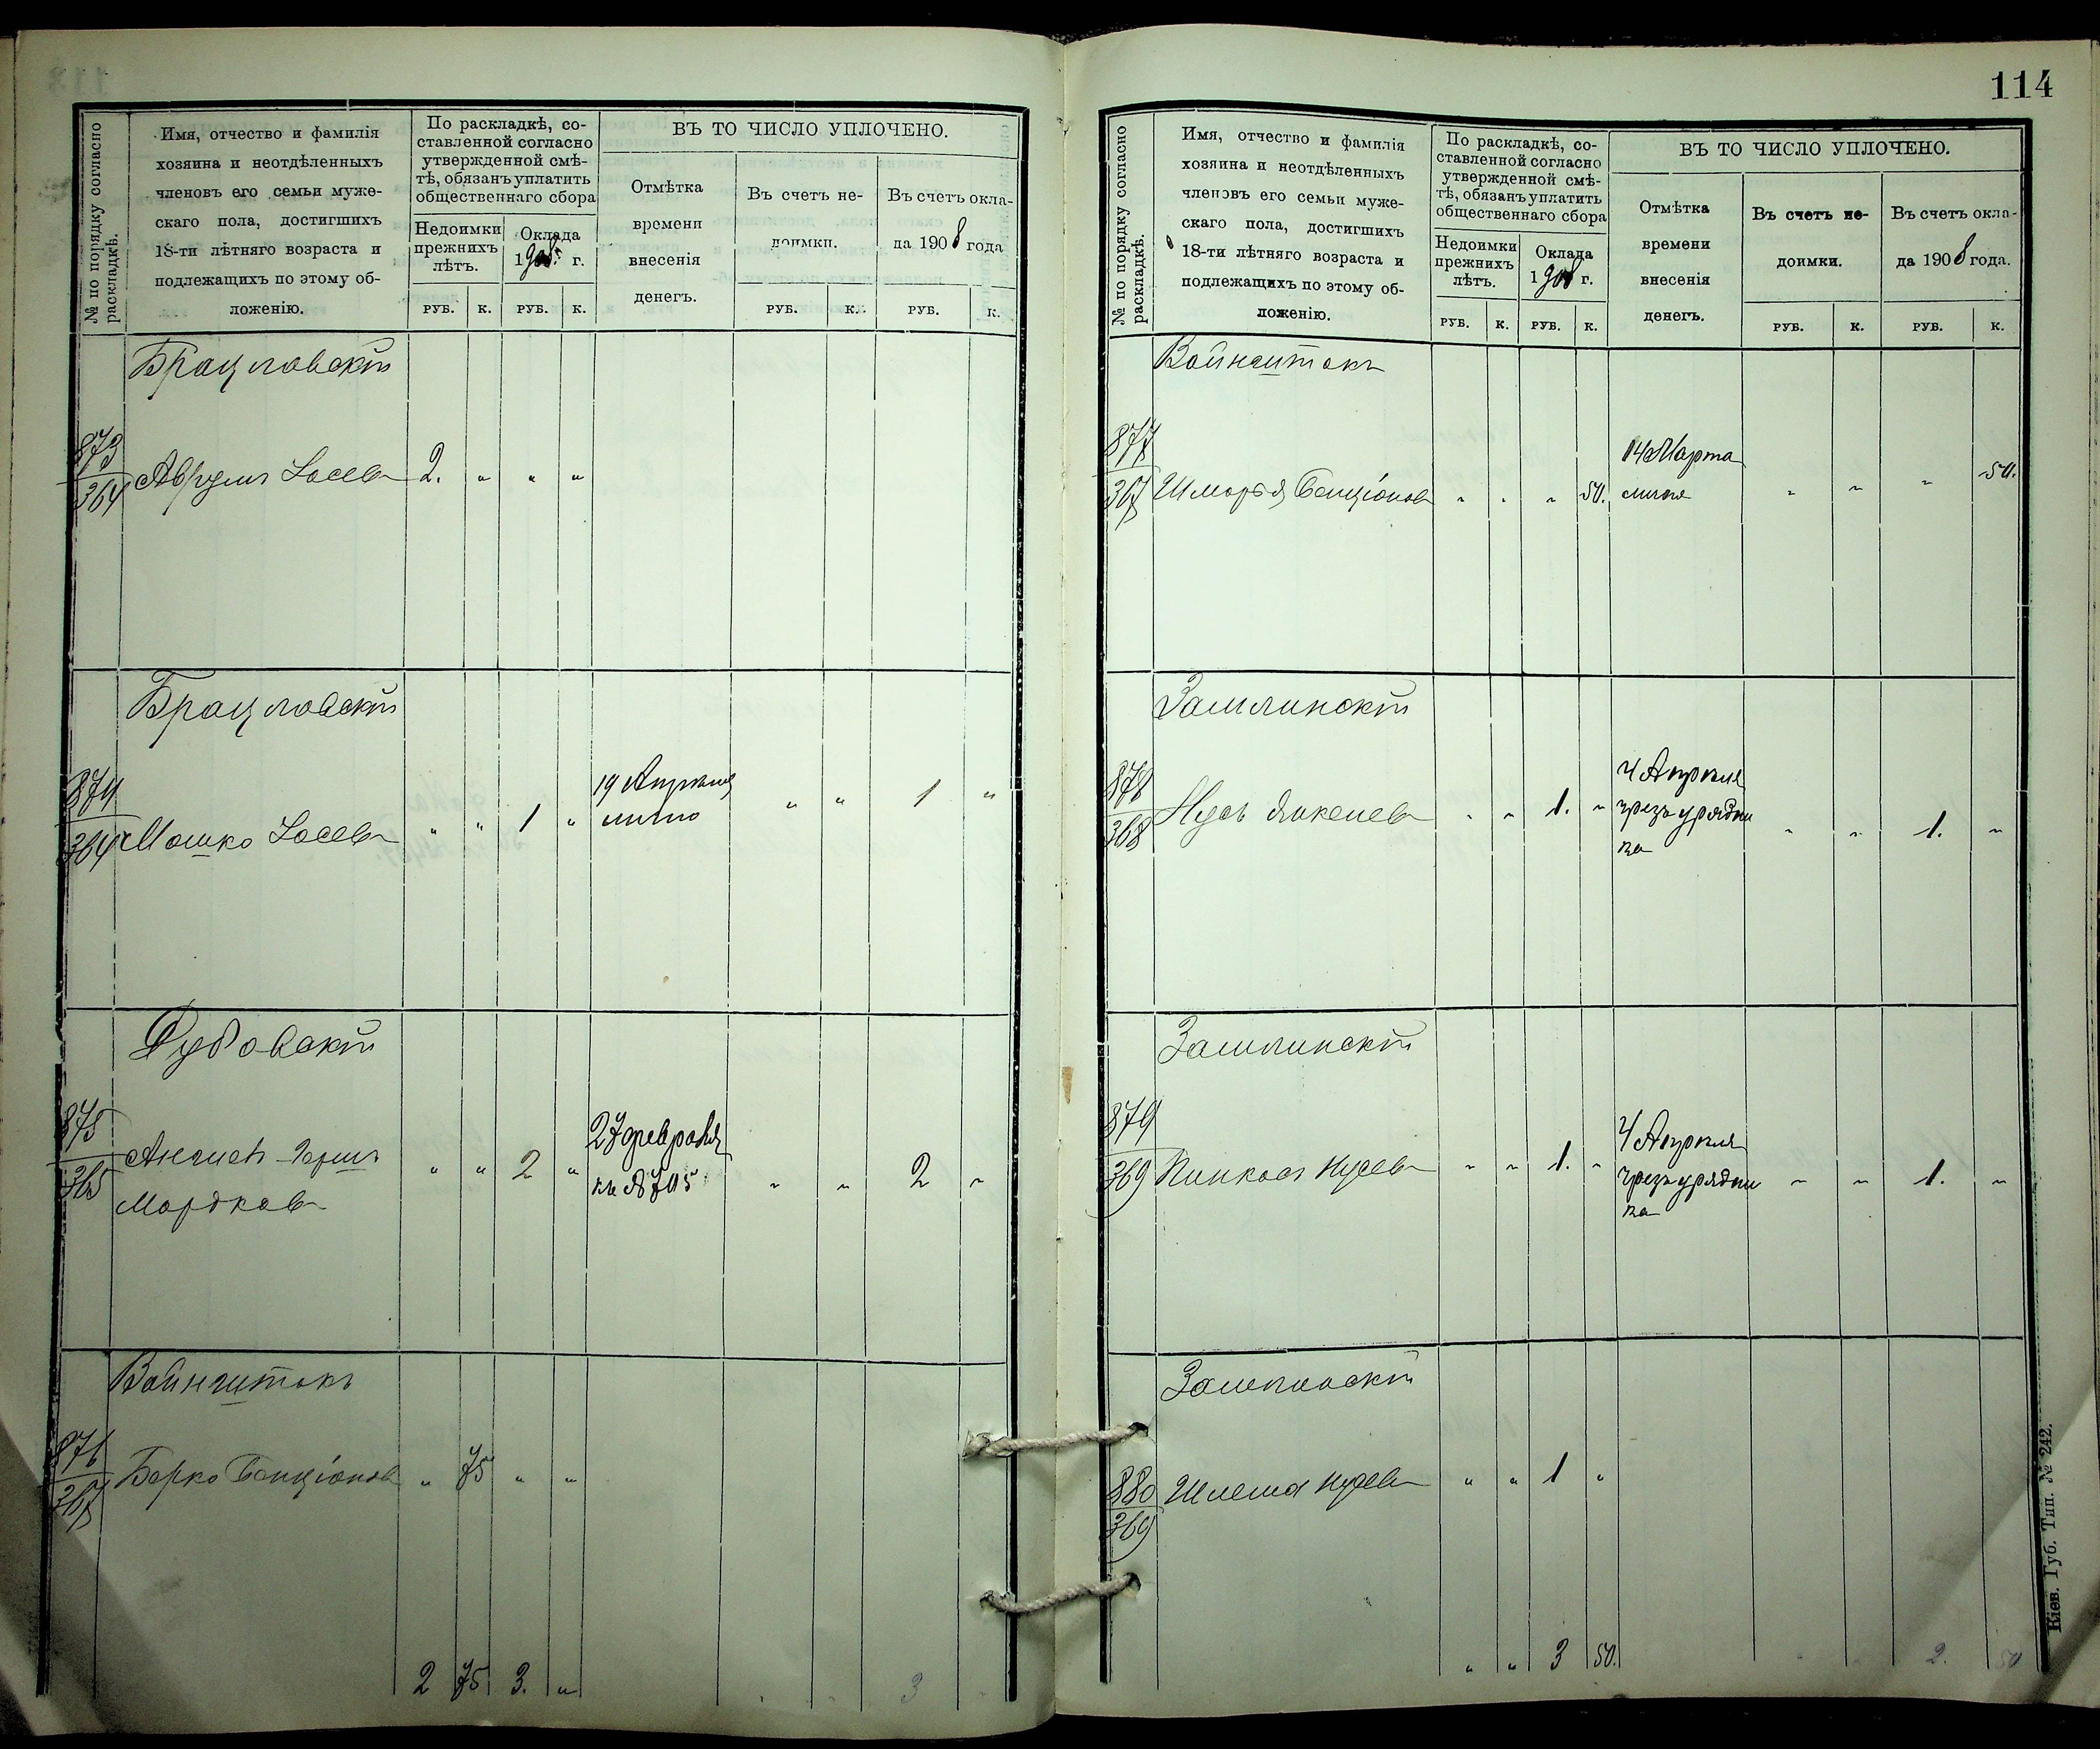 114
№ по порядку согласно
раскладкѣ.
Имя, отчество и фамилія
хозяина и неотдѣленныхъ
членовъ его семьи муже-
скаго пола, достигшихъ
18-ти лѣтняго возраста и
подлежащихъ по этому об-
ложенію.
По раскладкѣ, со-
ставленной согласно
утвержденной смѣ-
тѣ, обязанъ уплатить
общественнаго сбора
Недоимки
прежнихъ
лѣтъ.
Оклада
1908 г.
РУБ. К. РУБ. К.
ВЪ ТО ЧИСЛО УПЛОЧЕНО.
Отмѣтка
времени
внесенія
денегъ.
Въ счетъ не-
доимки.
РУБ. К.
Въ счетъ окла-
да 1908 года
РУБ. К.
Брацловскій
873
364
Аврумъ Іосев 2. " " "
Брацловскій
874
364
Мошко Іосев " " 1 "
19 Апрѣля
лично
" " 1 "
Дубовскій
875
365
Аншель-Герш
Мордков
" " 2 "
27 февраля
кв № 705
" " 2 "
Вайнштокъ
876
367
Берко Бенціонов " 75 " "
2 75 3. "
3
№ по порядку согласно
раскладкѣ.
Имя, отчество и фамилія
хозяина и неотдѣленныхъ
членовъ его семьи муже-
скаго пола, достигшихъ
18-ти лѣтняго возраста и
подлежащихъ по этому об-
ложенію.
По раскладкѣ, со-
ставленной согласно
утвержденной смѣ-
тѣ, обязанъ уплатить
общественнаго сбора
Недоимки
прежнихъ
лѣтъ.
Оклада
1908 г.
РУБ. К. РУБ. К.
ВЪ ТО ЧИСЛО УПЛОЧЕНО.
Отмѣтка
времени
внесенія
денегъ.
Въ счетъ не-
доимки.
РУБ. К.
Въ счетъ окла-
да 1908 года.
РУБ. К.
Вайнштокъ
877
367
Шмарья Бенціонов " " " 50.
14 Марта
лично
" " " 50.
Зашлинскій
878
368
Нусь Янкелев " " 1. "
4 Апрѣля
чрезъ урядни
ка
" " 1. "
Зашлинскій
879
369
Пинкас Нусев " " 1. "
4 Апрѣля
чрезъ урядни
ка
" " 1. "
Зашлинскій
880
369
Шлема Нусев " " 1 "
" " 3 50.
2. 50
Кіев. Губ. Тип. № 242.